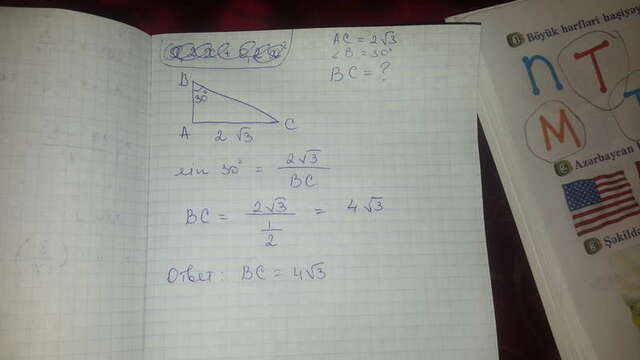 AC = 2√3
∠B = 30°
BC = ?
B
30°
A
C
2√3
sin 30° = 2√3 / BC
BC = 2√3 / (1/2) = 4√3
Ответ: BC = 4√3
6 Böyük hərfləri başıya
n T
M
Azərbaycan
Şəkild